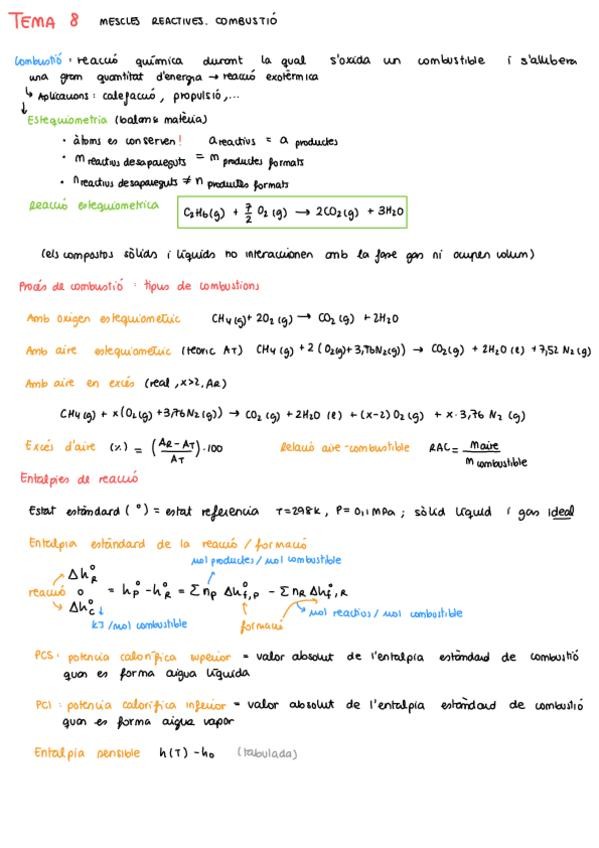 TEMA 8 MESCLES REACTIVES. COMBUSTIÓ
Combustió: reacció química durant la qual s'oxida un combustible i s'allibera
una gran quantitat d'energia → reacció exotèrmica
↳ Aplicacions: calefacció, propulsió,...
Estequiometria (balanç matèria)
· àtoms es conserven! a reactius = a productes
· m reactius desapareguts = m productes formats
· n reactius desapareguts ≠ n productes formats
Reacció estequiometrica C₂H₆(g) + 7/2 O₂(g) → 2CO₂(g) + 3H₂O
(els compostos sòlids i líquids no interaccionen amb la fase gas ni ocupen volum)
Procés de combustió: tipus de combustions
Amb oxigen estequiometric CH₄(g) + 2O₂(g) → CO₂(g) + 2H₂O
Amb aire estequiomètric (teòric AT) CH₄(g) + 2(O₂(g)+3,76N₂(g)) → CO₂(g) + 2H₂O(l) + 7,52 N₂(g)
Amb aire en excés (real, x>2, AR)
CH₄(g) + x(O₂(g) + 3,76 N₂(g)) → CO₂(g) + 2H₂O(l) + (x-2)O₂(g) + x·3,76 N₂(g)
Excés d'aire (%) = (AR-AT/AT)·100 Relació aire-combustible RAC = m aire/m combustible
Entalpies de reacció
Estat estàndard (°) = estat referència T=298K, P=0,1MPa; sòlid líquid i gas ideal
Entalpia estàndard de la reacció / formació
mol productes / mol combustible
Δh°R
reacció o = h°P - h°R = Σ nP Δh°f,P - Σ nR Δh°f,R
Δh°C
mol reactius / mol combustible
kJ/mol combustible formació
PCS: potencia calorífica superior = valor absolut de l'entalpia estàndard de combustió
quan es forma aigua líquida
PCI: potencia calorífica inferior = valor absolut de l'entalpia estàndard de combustió
quan es forma aigua vapor
Entalpia sensible h(T) - h₀ (tabulada)